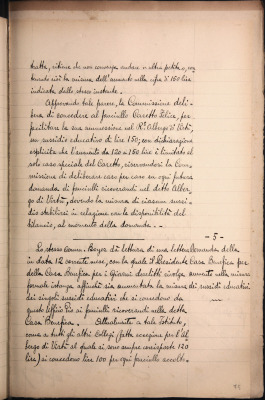 tratta, ritiene che non convenga andare
la misura dell'aumento nella cifra di 150 lire
indicata dallo stesso instante.
Approvando tale parere, la Commissione deli-
bera di concedere al fanciullo Caretto Felice, per
facilitare la sua ammissione nel R.º Albergo di Virtù,
un sussidio educativo di lire 150; con dichiarazione
esplicita che l'aumento da 120 a 150 lire è limitato al
solo caso speciale del Caretto, riservandosi la Com-
missione di deliberare caso per caso su ogni futura
domanda di fanciulli ricoverandi nel detto Alber-
go di Virtù, dovendo la misura di ciascun sussi-
dio stabilirsi in relazione colla disponibilità del
bilancio, al momento della domanda. -
- 5 -
Lo stesso Comm. Beyer dà lettura di una lettera
in data 12 corrente mese, con la quale il Presidente
della Casa Benefica per i Giovani derelitti rivolge
formale istanza affinchè sia aumentata la misura dei sussidi educativi
dei singoli sussidi educativi che si concedono da
quest'Ufficio Pio ai fanciulli ricoverandi nella detta
Casa Benefica. Attualmente a tale Istituto,
come a tutti gli altri Collegi (fatta eccezione per l'al-
bergo di Virtù al quale si sono sempre corrisposte 120
lire) si concedono lire 100 per ogni fanciullo accolto.